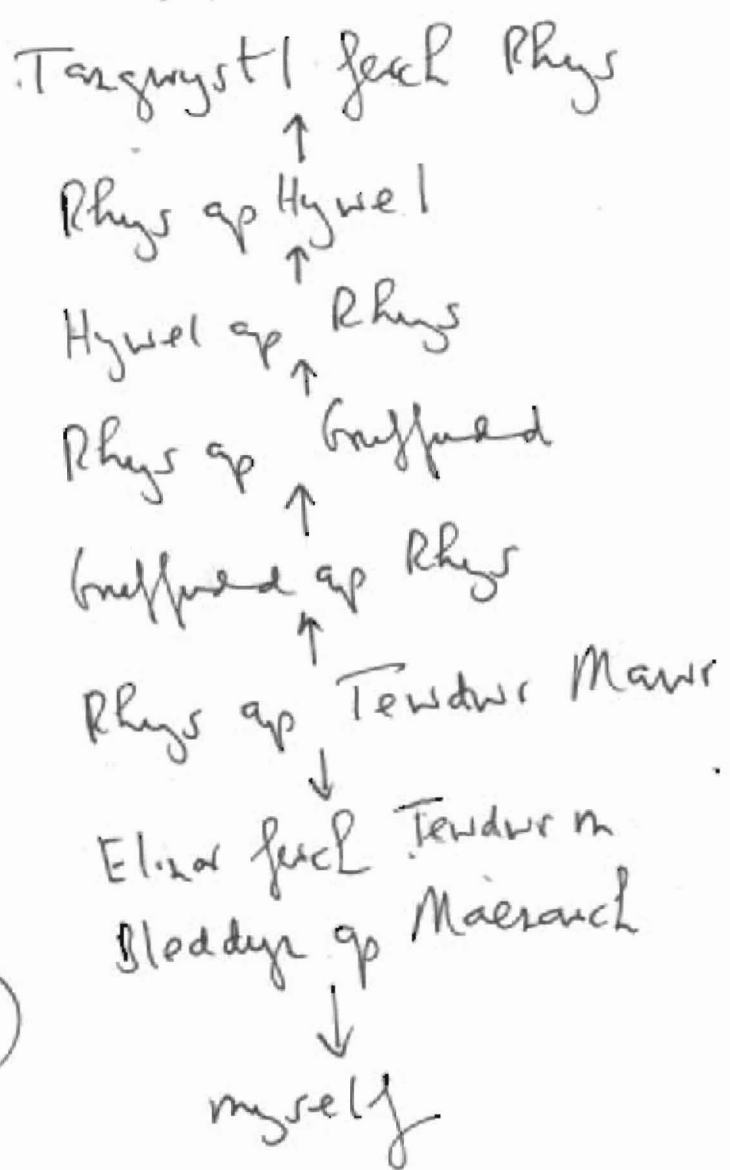 Tangwystl ferch Rhys
↑
Rhys ap Hywel
↑
Hywel ap Rhys
↑
Rhys ap Gruffudd
↑
Gruffudd ap Rhys
↑
Rhys ap Tewdwr Mawr
↓
Elinor ferch Tewdwr m
Bleddyn ap Maenarch
↓
myself